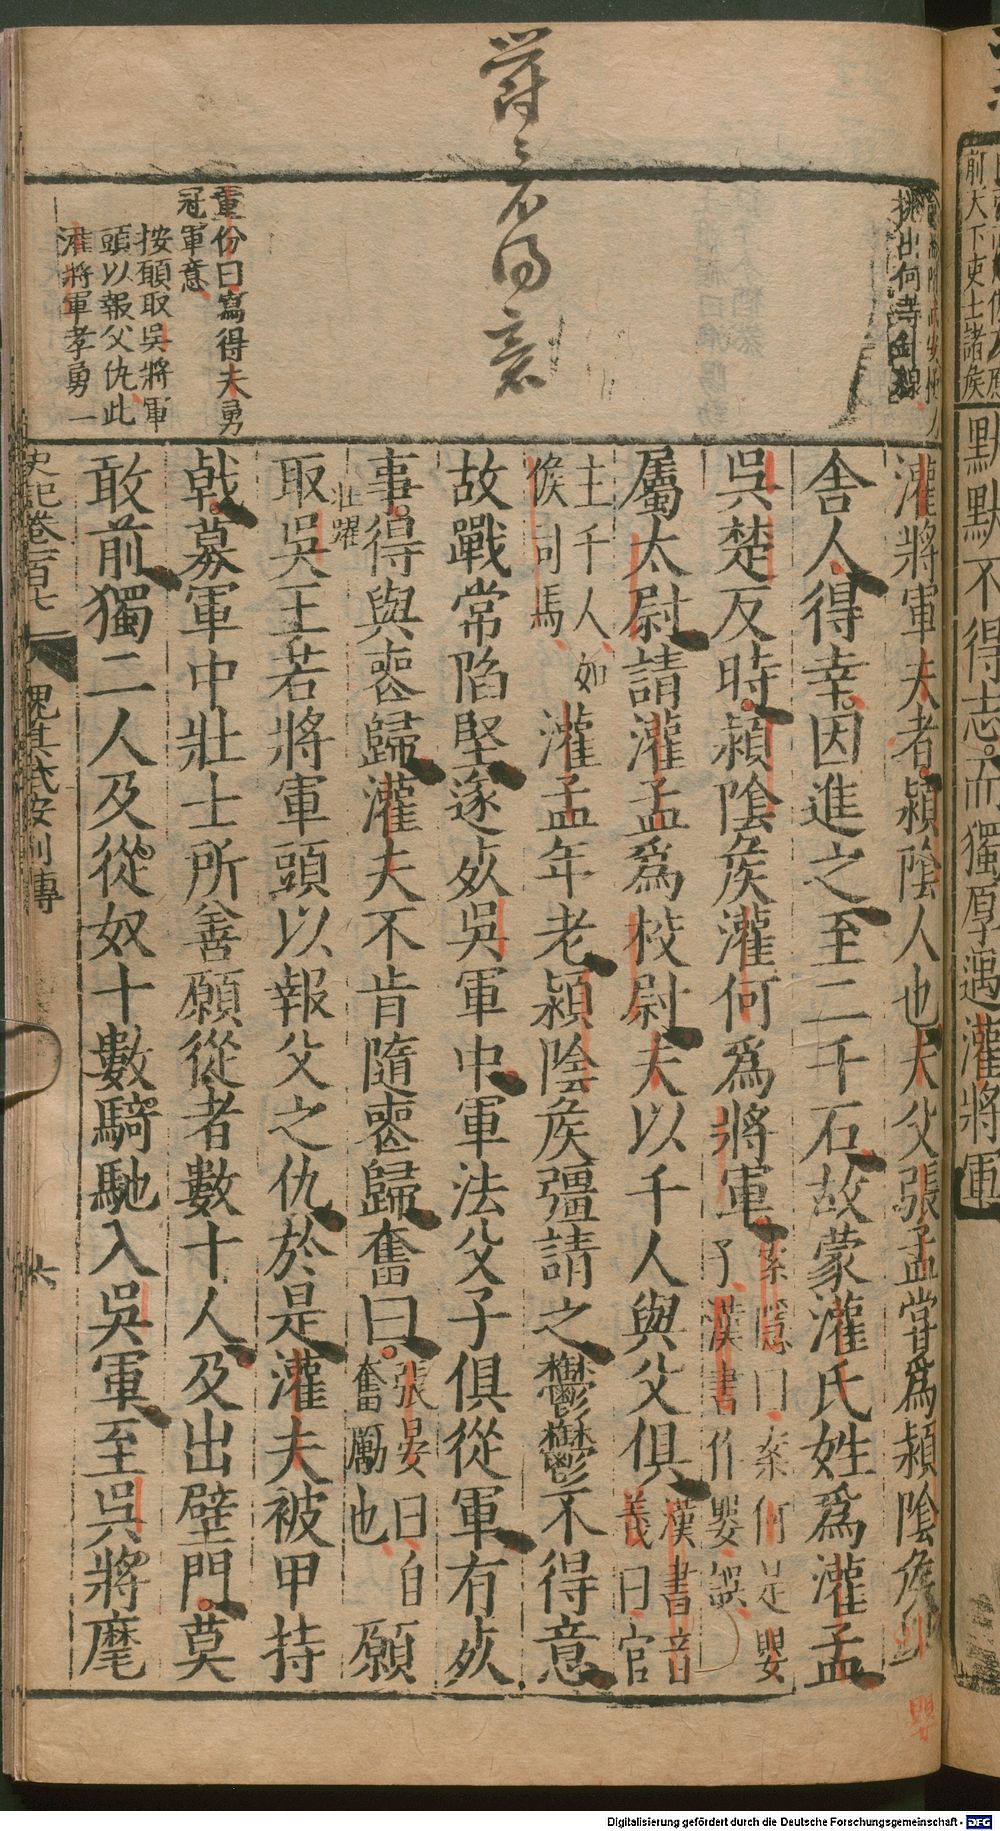 前大下吏士諸矦
默默不得志而獨厚遇灌將軍
挑出何等針線
灌將軍夫者潁陰人也夫父張孟嘗爲潁陰矦
嬰
舍人得幸因進之至二千石故蒙灌氏姓爲灌孟
吳楚反時潁陰矦灌何爲將軍
索隱曰案何是嬰
子漢書作嬰誤
屬太尉請灌孟爲校尉夫以千人與父俱
漢書音
義曰官
主千人如
候司馬
灌孟年老潁陰矦彊請之鬱鬱不得意
故戰常陷堅遂死吳軍中軍法父子俱從軍有死
事得與喪歸灌夫不肯隨喪歸奮曰
張晏曰自
奮勵也
願
壯躍
取吳王若將軍頭以報父之仇於是灌夫被甲持
戟募軍中壯士所善願從者數十人及出壁門莫
敢前獨二人及從奴十數騎馳入吳軍至吳將麾
童份曰寫得夫勇
冠軍意
按願取吳將軍
頭以報父仇此
灌將軍孝勇一
史記卷一百七
魏其武安列傳
六
Digitalisierung gefördert durch die Deutsche Forschungsgemeinschaft - DFG